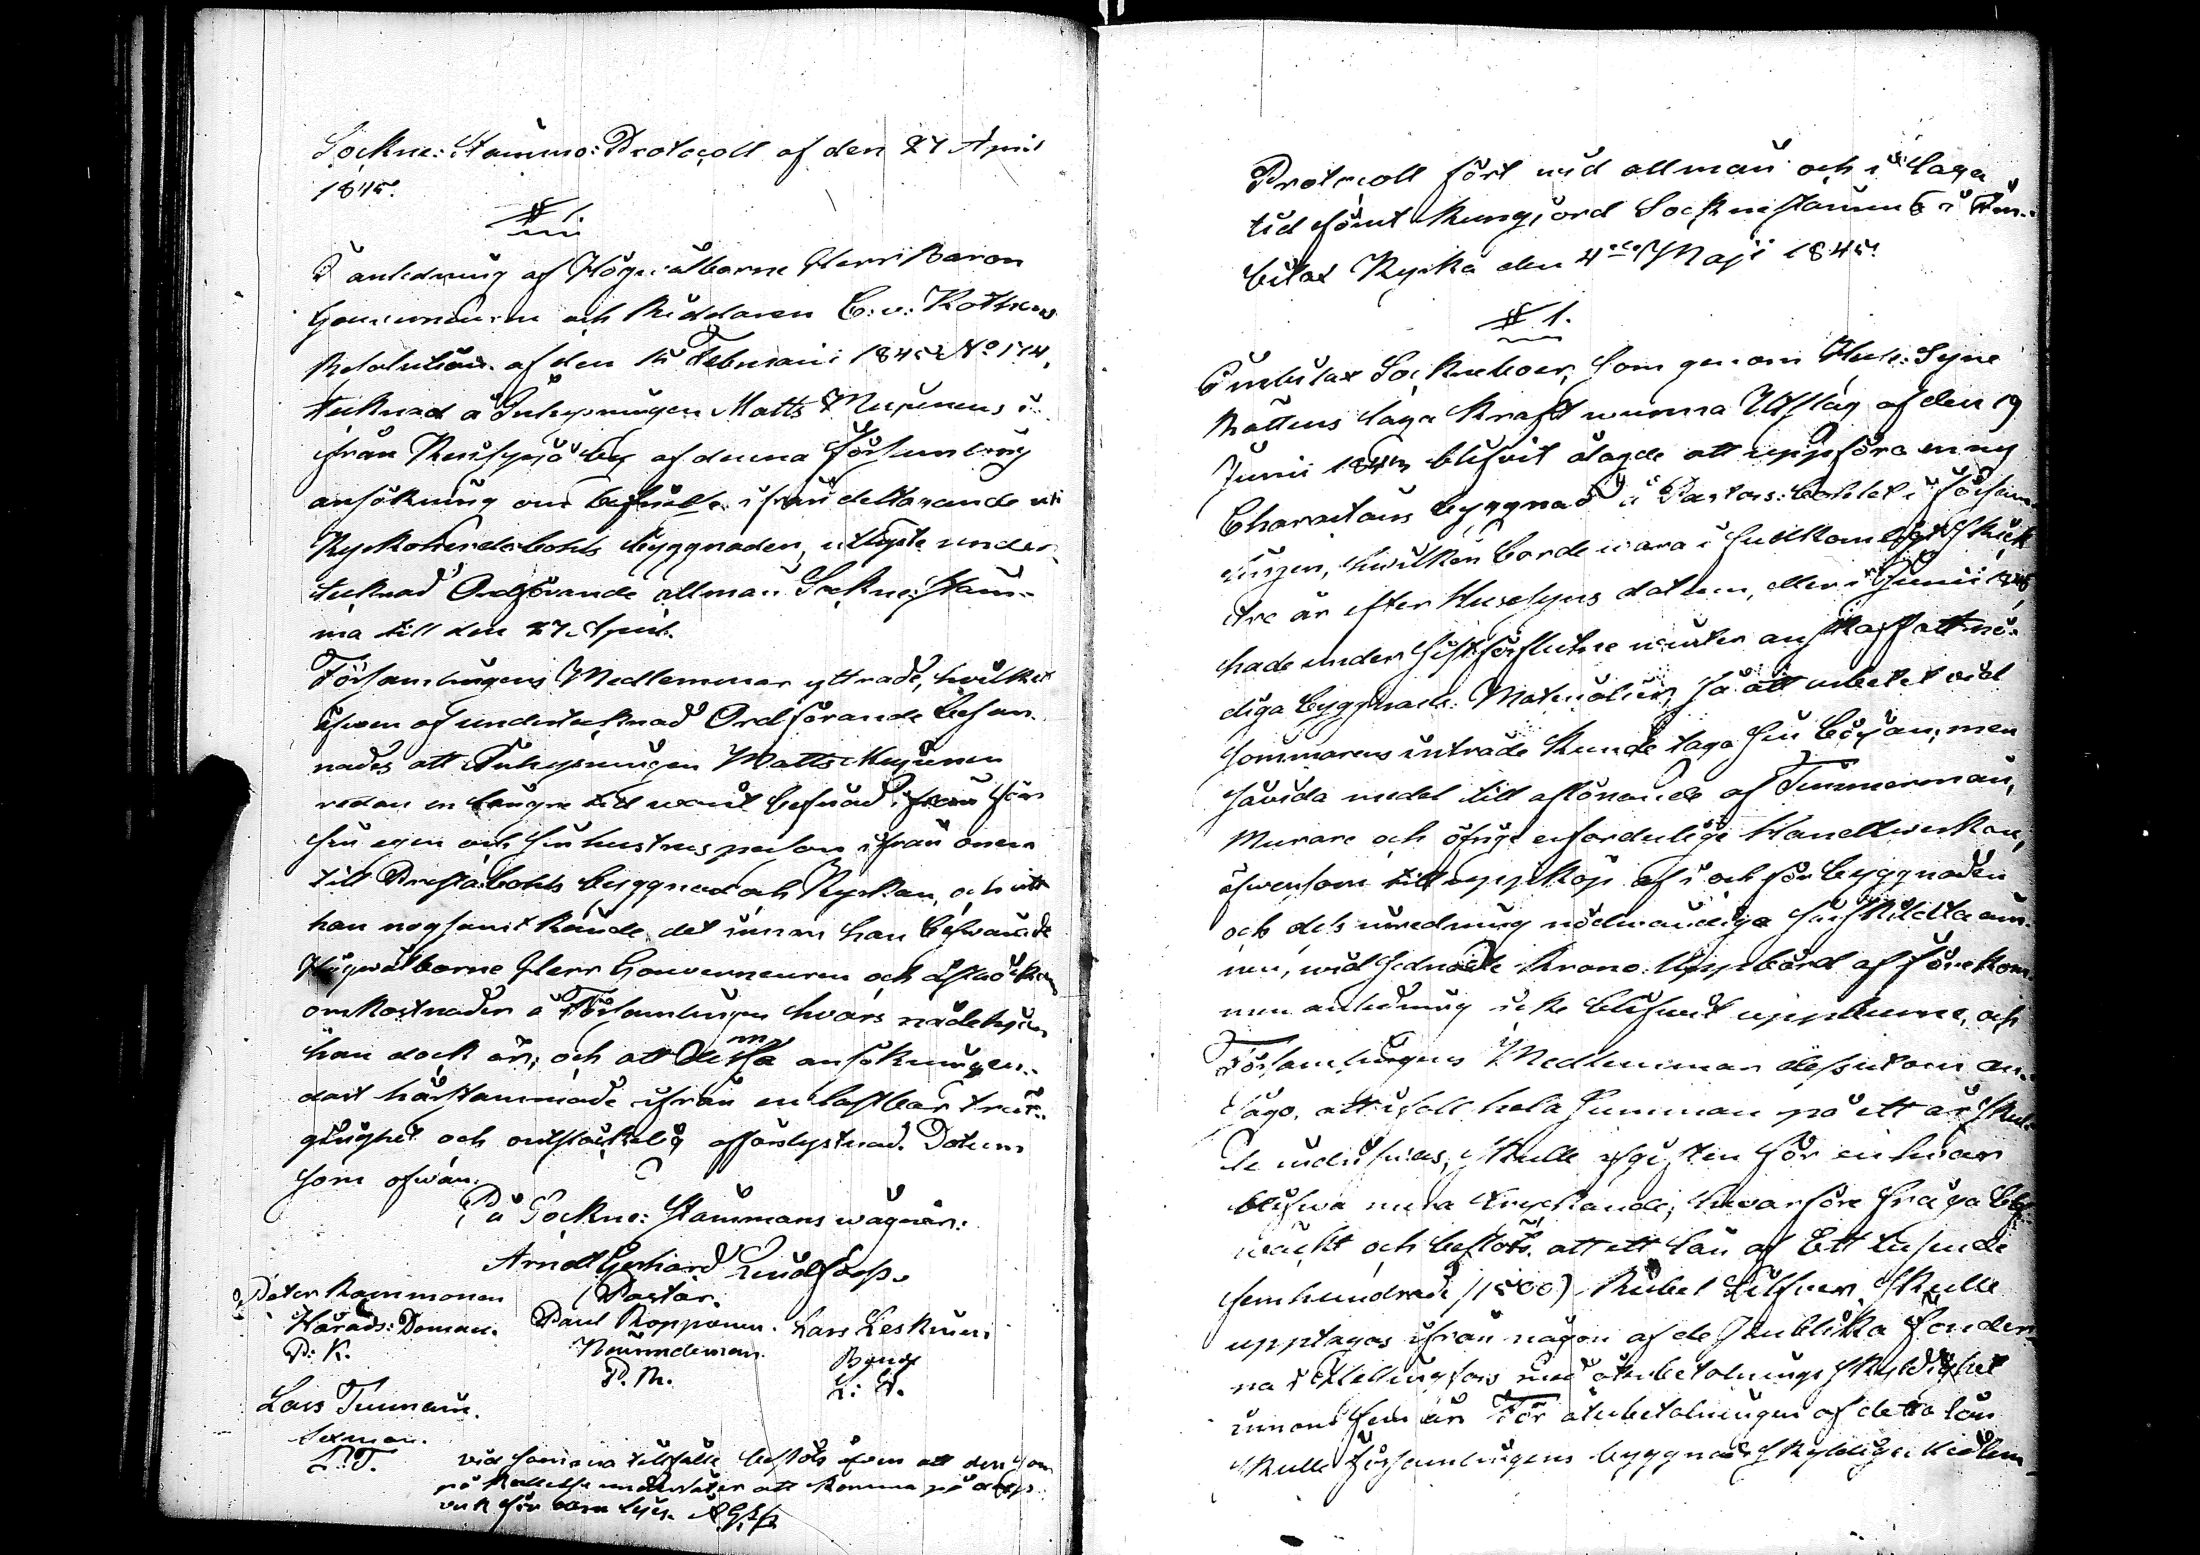 Sockne: Stämmo: Protocoll af den 27 April
1845.
§ 1.
I anledning af Högvälborne Herr Baron
Gouverneuren och Riddaren C: v: Kothens
Resolution af den 15 Februarii 1845 No 174,
tecknad å Inhysningen Matts
ifrån by af denna Församling
ansökning om befrielse ifrån deltagande uti
Kyrkoherdebohls byggnaden, utlyste under-
tecknad Ordförande allmän Sockne: Stäm-
ma till den 27 April.
Församlingens Medlemmar yttrade, hvilket
äfven af undertecknad Ordförande besan-
nades att Inhysningen Matts
redan en längre tid varit befriad ifrån för
sin egen och sin hustrus person ifrån onera
till Prestabohls byggnad och Kyrkan, och att
han nogsamt kände det innan han besvärade
Högwälborne Herr Gouverneuren och
omkostnader å Församlingen hvars nådehjon
han dock är; och att denna ansökning en-
dast härstammade ifrån en lastbar
och affärslystnad. Datum
som ofwan.
På Sockne: Stämmans wägnar:
Arndt Gerhard
Pastor.
Peter Rammonen
Härads: Doman.
P: R.
Paul Ropponen.
Nämndeman.
P. R.
Lars Leskinen
Bonde
L: L.
Lars Timmain.
Sexman.
L. T.
vid samma tillfälle beslöts äfven att den som
på kallelse underlåter att komma på dags-
verk för
Protocoll fört vid allmän och i laga
tid förut kungjord Sockne stämma i Pum-
bilax Kyrka den 4de Maji 1845.
§ 1.
Pumbilax Sockneboer, som genom Hus: Syne
Rättens laga kraft wunna Utslag af den 19
Junii 184 blifvit ålagde att uppföra en ny
Characters byggnad å Pastors: bohlet i försam-
lingen, hwilken borde wara i fullkomligt skick
tre år efter Husesyns datum, eller i Junii
hade under sistförflutne winter anskaffat nö-
diga byggnads: Materialier, så att arbetet vid
sommarens inträde kunde taga sin början; men
såvida medel till aflönande af Timmermän,
Murare och öfrige erforderlige Handtwerkare,
äfwensom till uppköp af i och för byggnaden
och dess inredning nödwändiga särskildta äm-
nen, wid sednaste Krono: Uppbörd af förekom-
men anledning icke blifwit uppburne, och
Församlingens Medlemmar dessutom an-
sågo, att ifall hela summan på ett år skul-
le indrifwas, skulle utgiften för en hwar
blifwa mera tryckande; hwarföre fråga
wäckt och beslöts, att ett lån af Ett tusende
femhundrade (1500) Rubel Silfwer skulle
upptagas ifrån någon af de Publika Fonder-
na i Helsingfors med återbetalnings skyldighet
innom fem år. För återbetalningen af detta lån
skulle Församlingens byggnads skyldige Medlem-